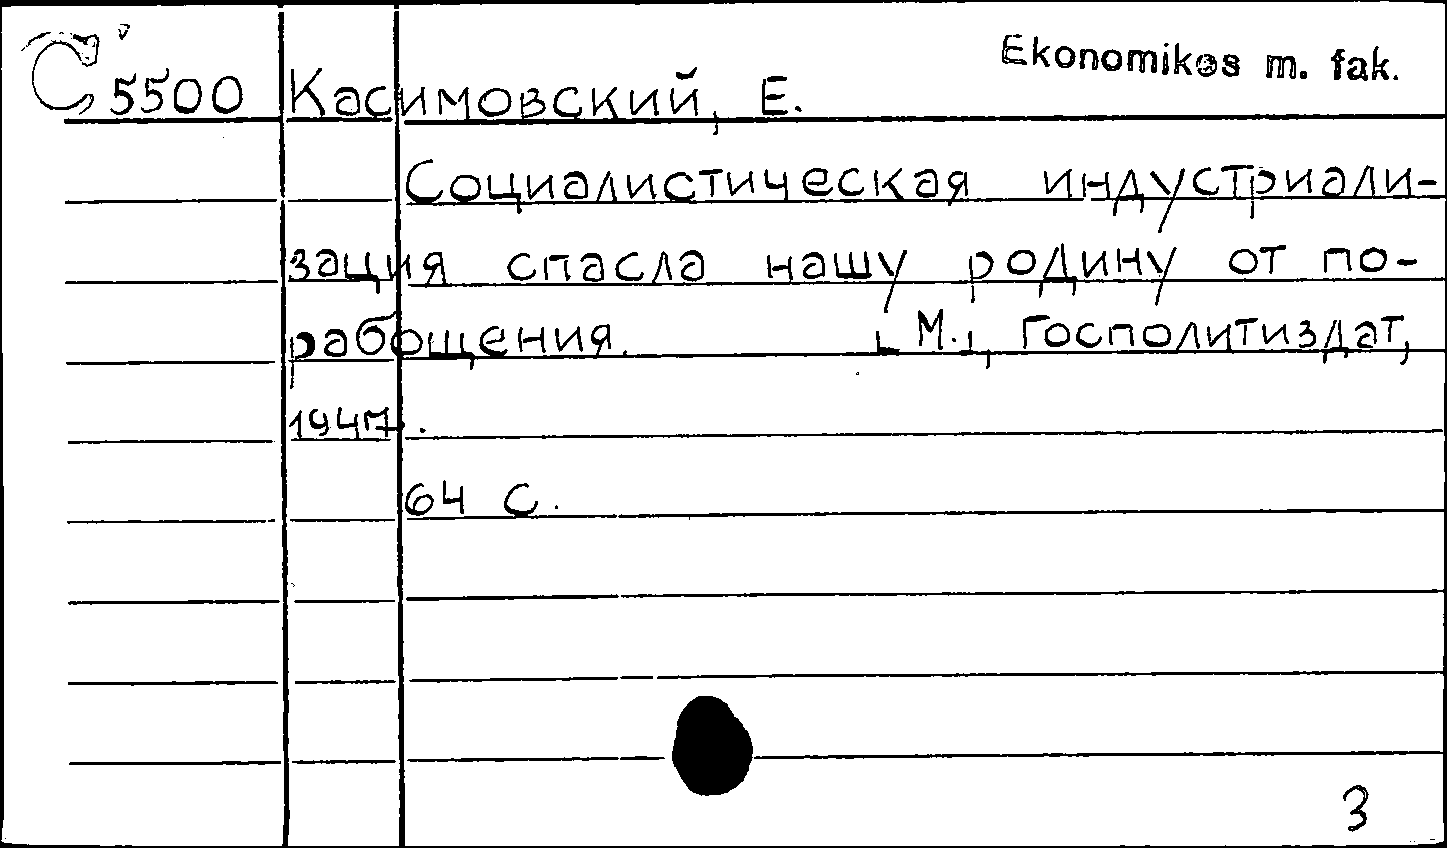 Ekonomikos m. fak.
С 5500 Касимовский, Е.
Социалистическая индустриали-
зация спасла нашу родину от по-
рабощения. [М.], Госполитиздат,
1947.
64 с.
3